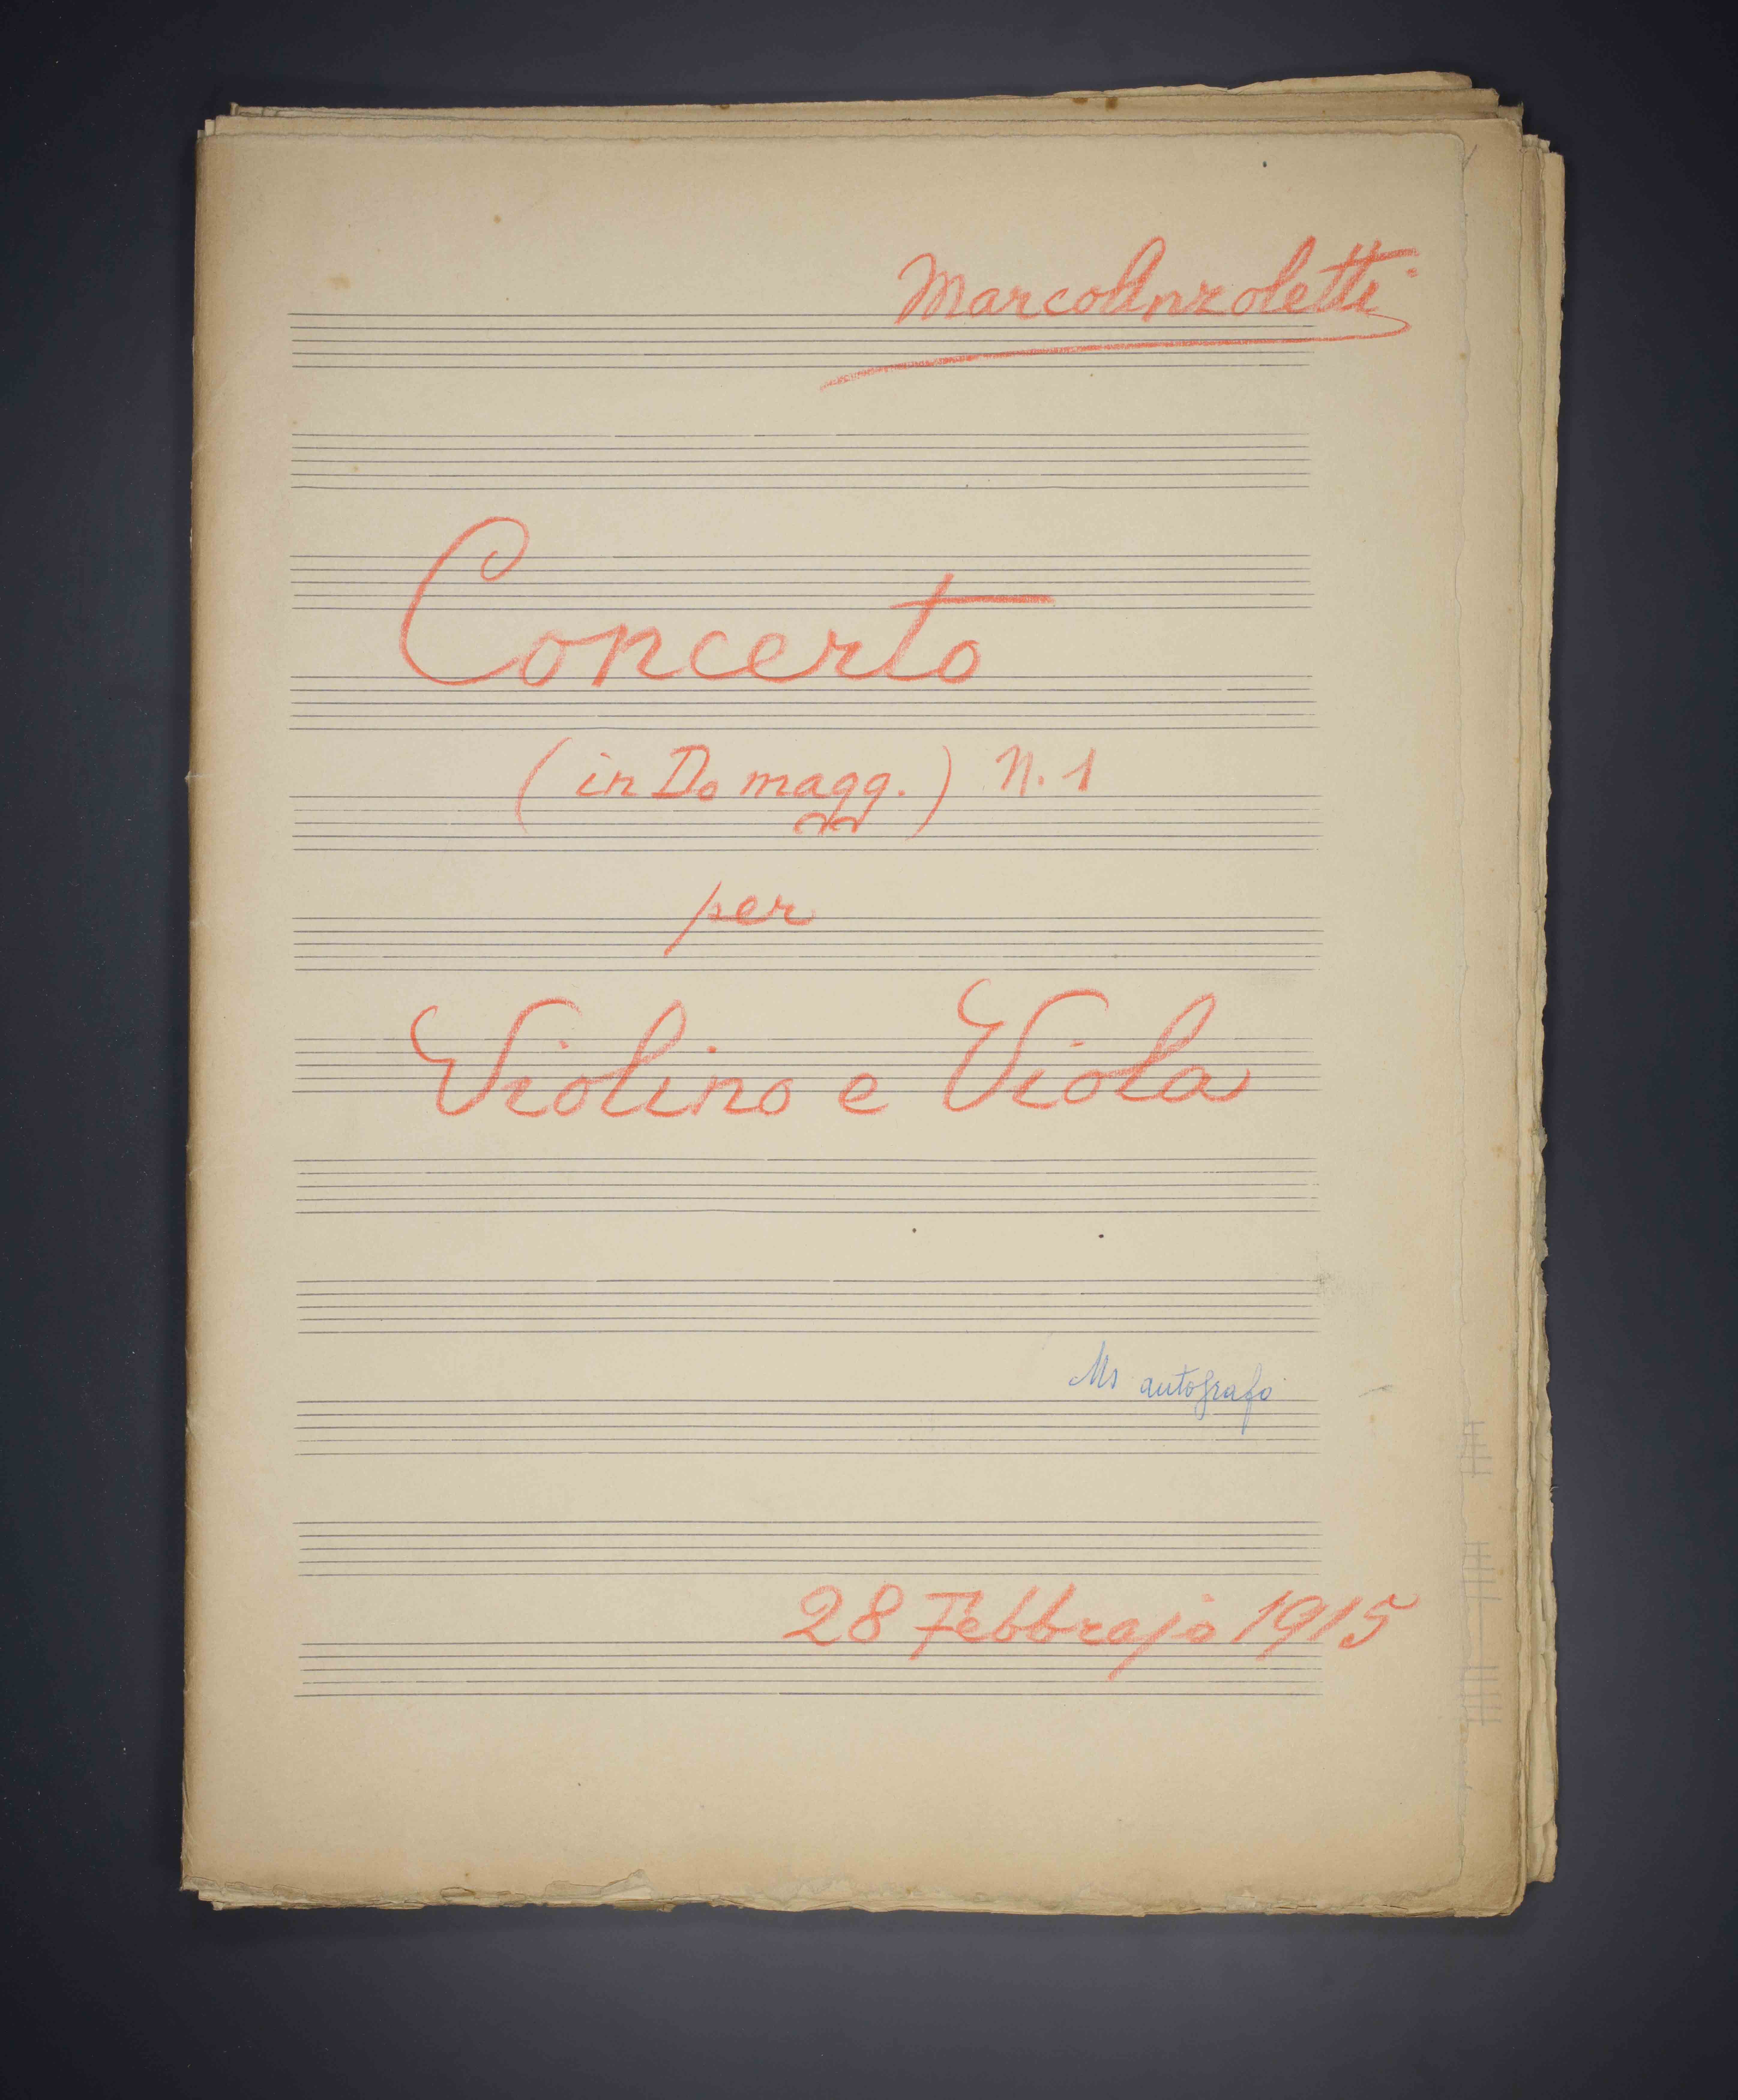 Marco Anzoletti
Concerto
(in Do magg.) N. 1
per
Violino e Viola
Ms autografo
28 Febbrajo 1915